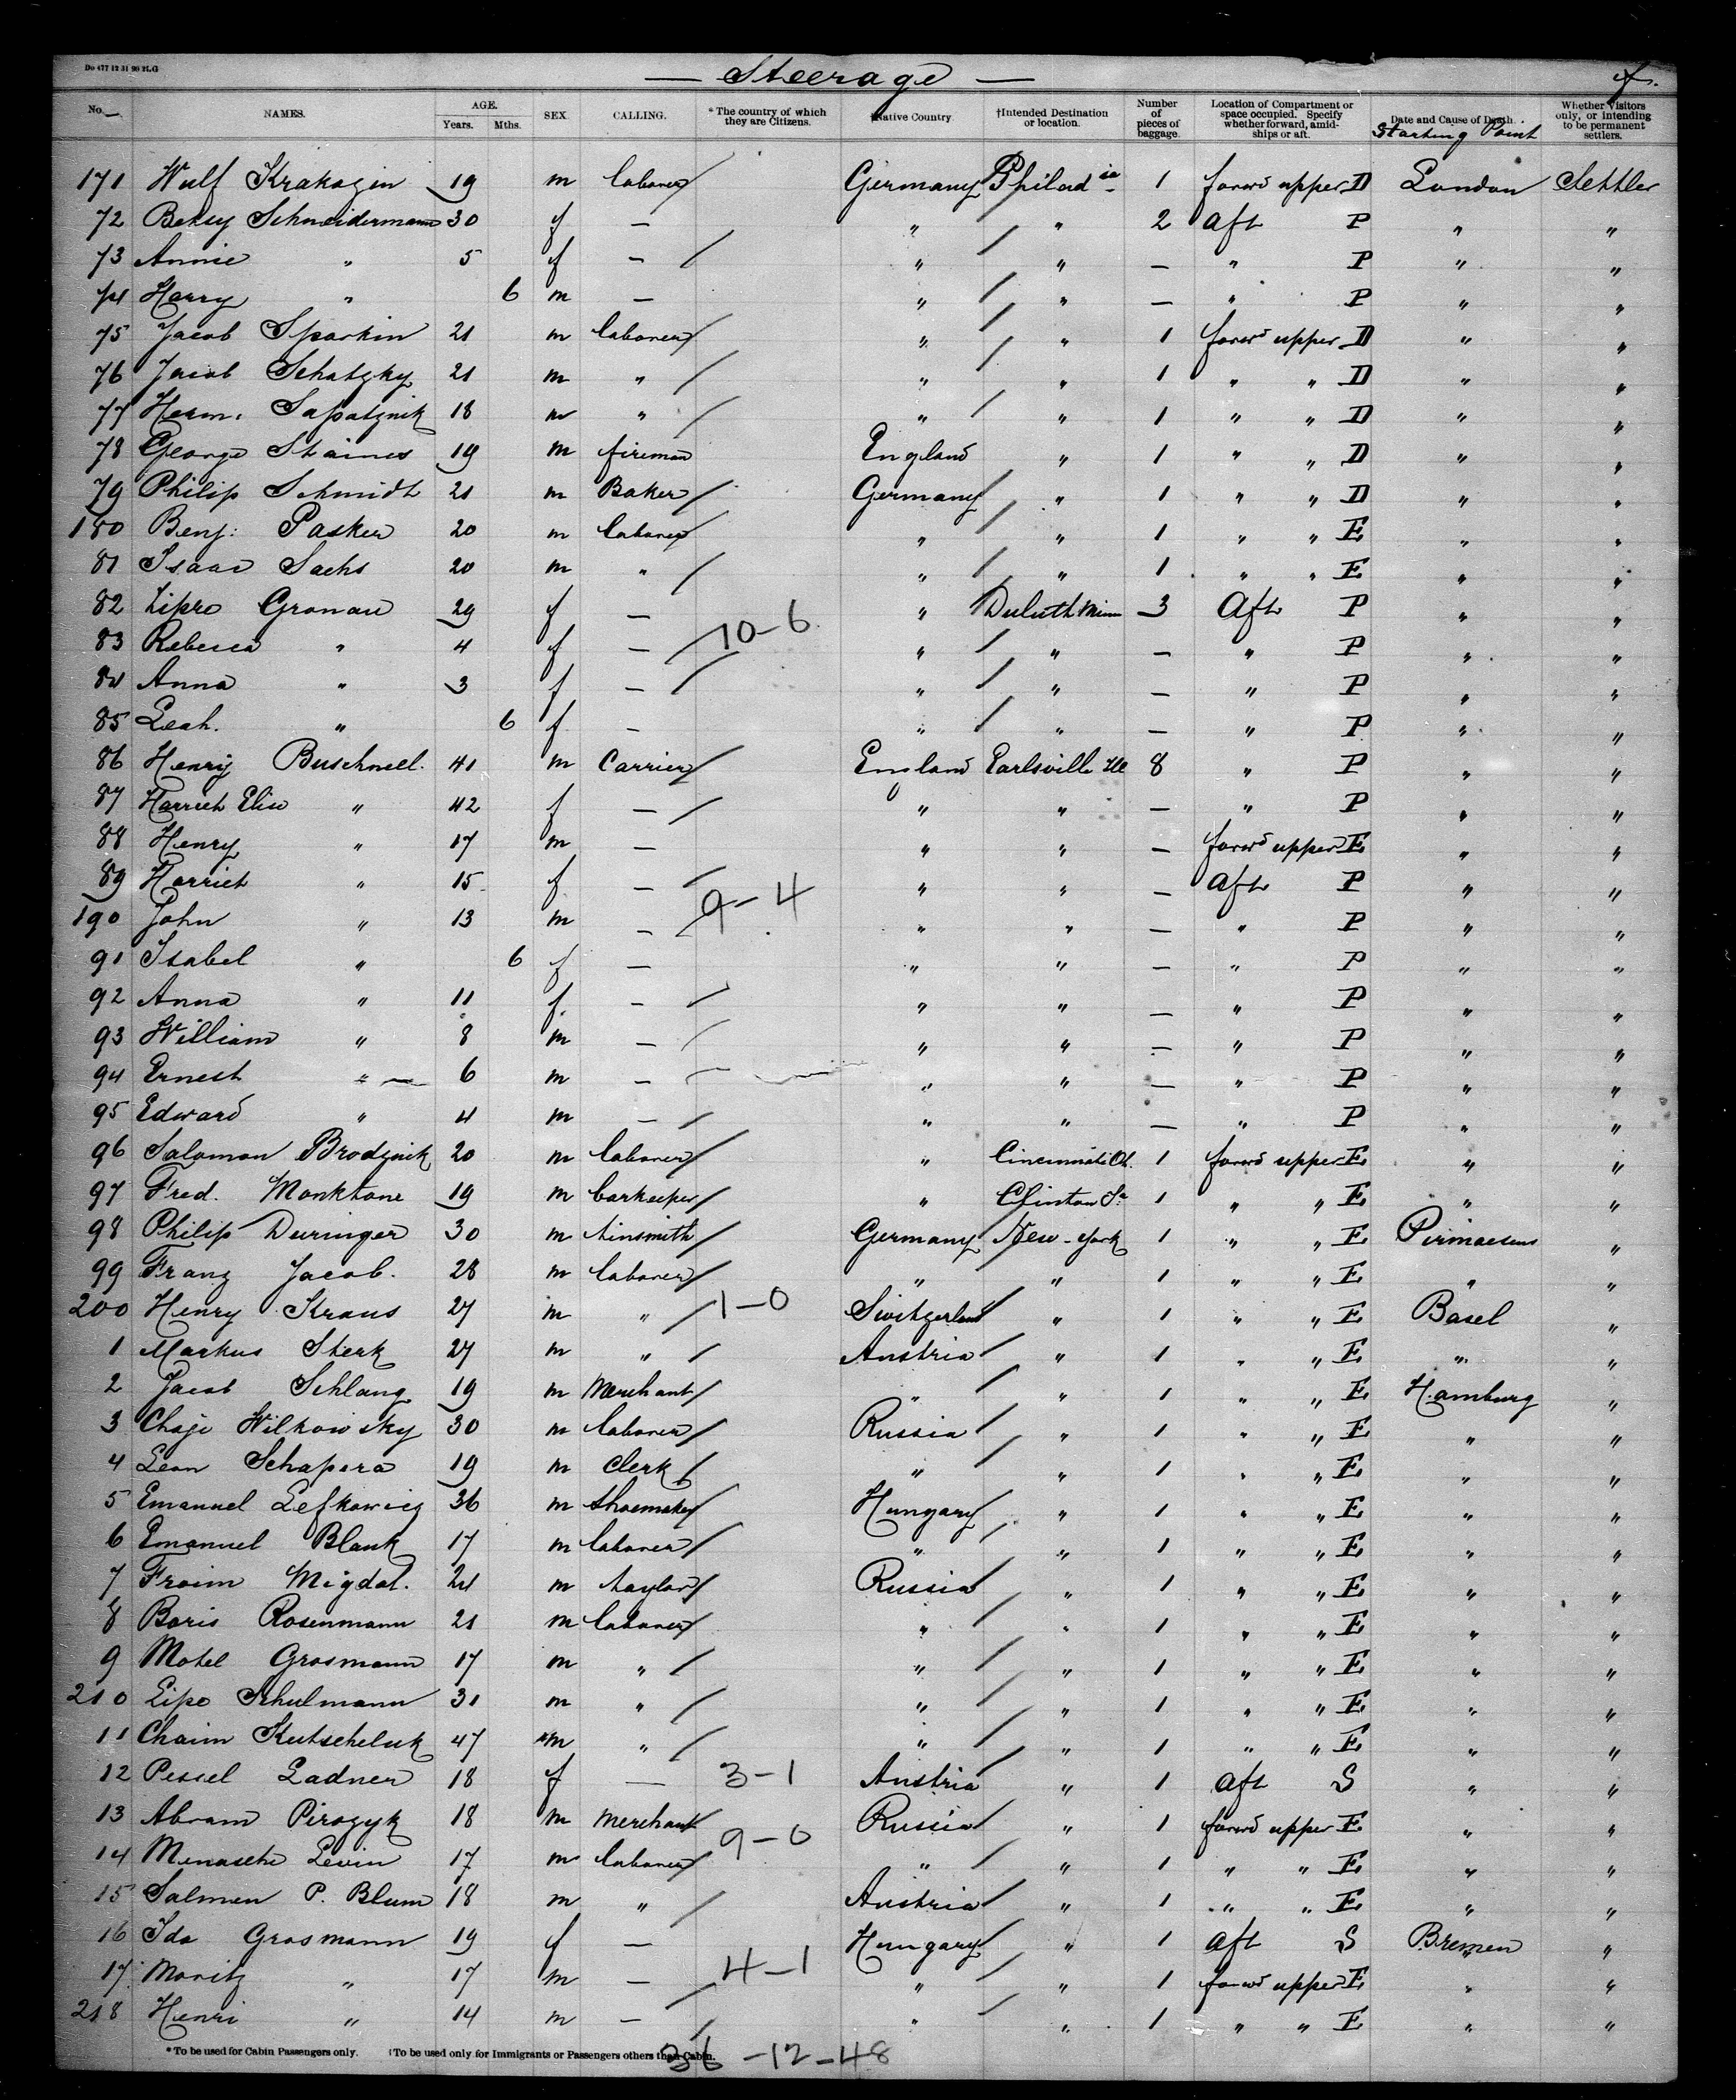 Do 477 12 31 90 H.G
— Steerage —
No. NAMES. AGE. Years. Mths. SEX. CALLING. * The country of which they are Citizens. †Native Country. †Intended Destination or location. Number of pieces of baggage. Location of Compartment or space occupied. Specify whether forward, amidships or aft. Date and Cause of Death. Starting Point Whether Visitors only, or intending to be permanent settlers.
171 Wulf Krakozin 19 m laborer Germany Philadia 1 forwd upper D London Settler
72 Betsy Schneidermann 30 f — " " 2 Aft P " "
73 Annie " 5 f — " " — " P " "
74 Harry " 6 m — " " — " P " "
75 Jacob Sparkin 21 m laborer " " 1 forwd upper D " "
76 Jacob Schatzky 21 m " " " 1 " " D " "
77 Herm. Sapatznik 18 m " " " 1 " " D " "
78 George Staines 19 m fireman England " 1 " " D " "
79 Philip Schmidt 21 m Baker Germany " 1 " " D " "
180 Benj: Pasker 20 m laborer " " 1 " " E " "
81 Isaac Sachs 20 m " " " 1 " " E " "
82 Lipro Gronau 29 f — " Duluth Minn 3 Aft P " "
83 Rebecca " 4 f — 10-6 " " — " P " "
84 Anna " 3 f — " " — " P " "
85 Leah. " 6 f — " " — " P " "
86 Henry Buschnell. 41 m Carrier England Earlsville Ill 8 " P " "
87 Harriet Elise " 42 f — " " — " P " "
88 Henry " 17 m — " " — forwd upper E " "
89 Harriet " 15 f — " " — Aft P " "
190 John " 13 m — 9-4 " " — " P " "
91 Isabel " 6 f — " " — " P " "
92 Anna " 11 f — " " — " P " "
93 William " 8 m — " " — " P " "
94 Ernest " 6 m — " " — " P " "
95 Edward " 4 m — " " — " P " "
96 Salomon Brodznik 20 m laborer " Cincinnati Oh. 1 forwd upper E " "
97 Fred. Monktone 19 m barkeeper " Clinton Ia 1 " " E " "
98 Philip Deuringer 30 m tinsmith Germany New-York 1 " " E Pirmasens "
99 Franz Jacob. 28 m laborer " " 1 " " E " "
200 Henry Kraus 27 m " 1-0 Switzerland " 1 " " E Basel "
1 Markus Sterk 27 m " Austria " 1 " " E " "
2 Jacob Schlang 19 m Merchant " " 1 " " E Hamburg "
3 Chaje Wilkowisky 30 m laborer Russia " 1 " " E " "
4 Leon Schapera 19 m Clerk " " 1 " " E " "
5 Emanuel Lefkowicz 36 m shoemaker Hungary " 1 " " E " "
6 Emanuel Blank 17 m laborer " " 1 " " E " "
7 Froim Migdal. 24 m taylor Russia " 1 " " E " "
8 Boris Rosenmann 21 m laborer " " 1 " " E " "
9 Motel Grosmann 17 m " " " 1 " " E " "
210 Lipo Schulmann 31 m " " " 1 " " E " "
11 Chaim Kutscheluk 47 m " " " 1 " " E " "
12 Pessel Ladner 18 f — 3-1 Austria " 1 Aft S " "
13 Abram Pirozyk 18 m Merchant Russia " 1 forwd upper E " "
14 Menasche Levin 17 m laborer 9-0 " " 1 " " E " "
15 Salmen P. Blum 18 m " Austria " 1 " " E " "
16 Ida Grosmann 19 f — Hungary " 1 Aft S Bremen "
17 Moritz " 17 m — 4-1 " " 1 forwd upper E " "
218 Henri " 14 m — " " 1 " " E " "
* To be used for Cabin Passengers only. †To be used only for Immigrants or Passengers others than Cabin.
36-12-48